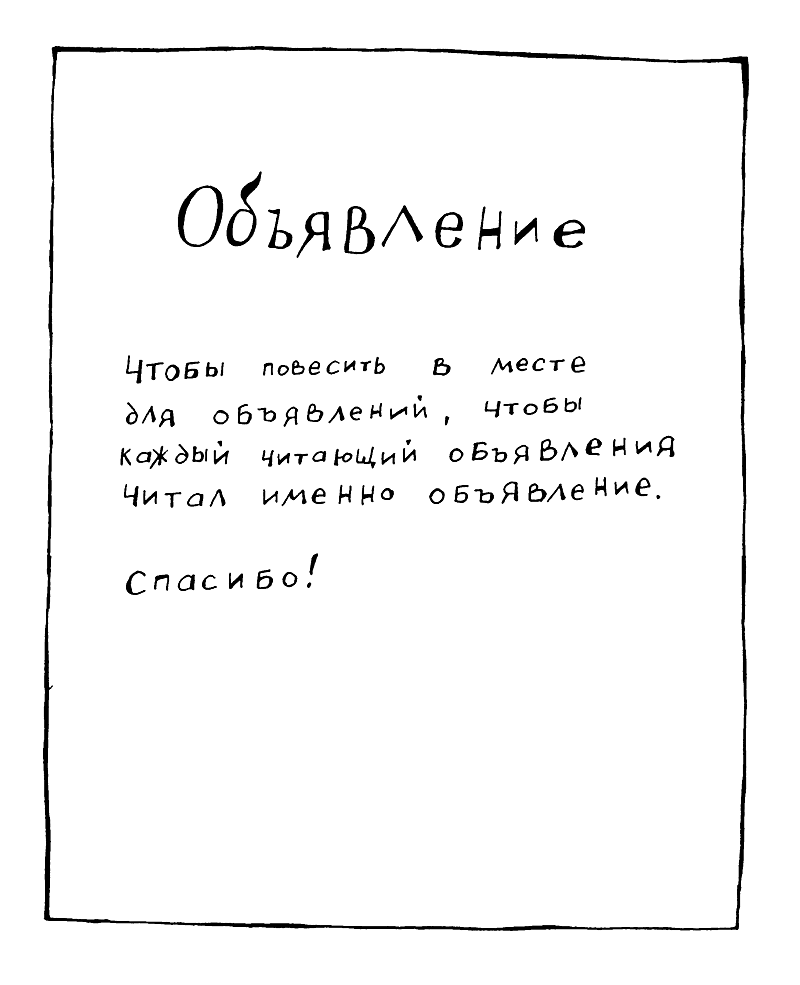 Объявление
Чтобы повесить в месте
для объявлений, чтобы
каждый читающий объявления
читал именно объявление.
Спасибо!